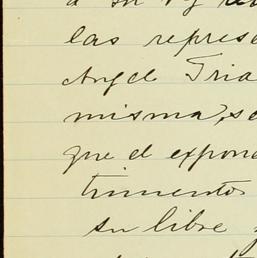 las represe
Angel Tria
misma, se
que el expon
timientos
su libre